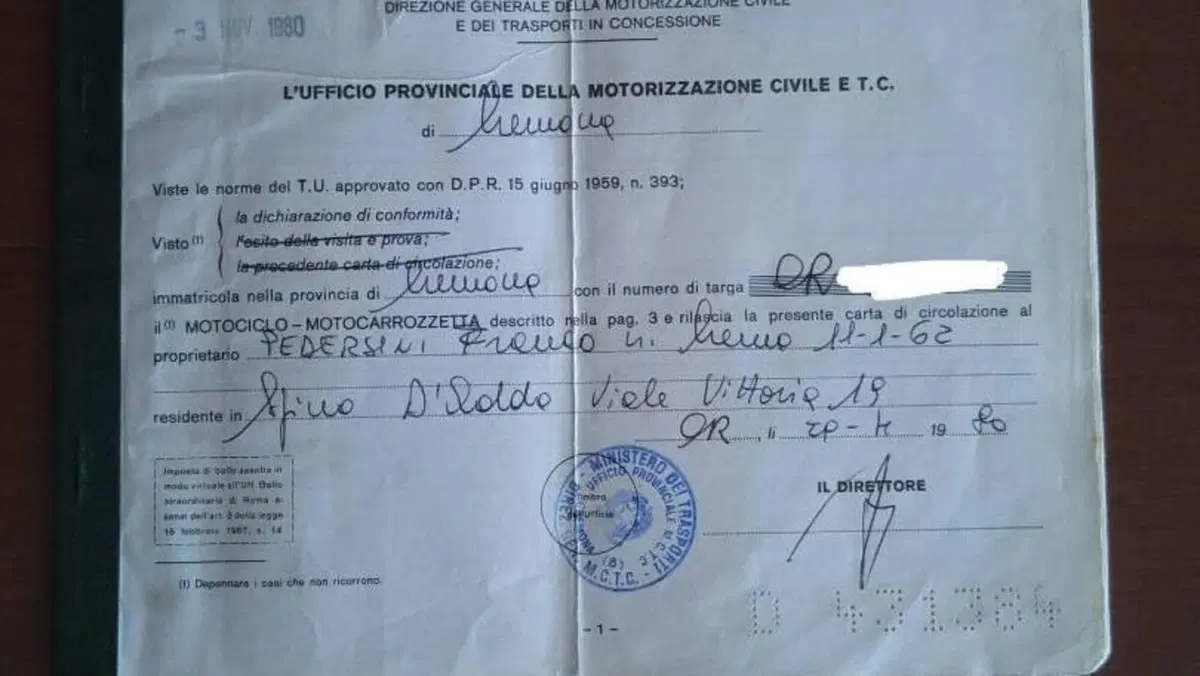 - 3 NOV. 1980
DIREZIONE GENERALE DELLA MOTORIZZAZIONE CIVILE
E DEI TRASPORTI IN CONCESSIONE
L'UFFICIO PROVINCIALE DELLA MOTORIZZAZIONE CIVILE E T.C.
di Cremona
Viste le norme del T.U. approvato con D.P.R. 15 giugno 1959, n. 393;
Visto (1)
la dichiarazione di conformità;
l'esito della visita e prova;
la precedente carta di circolazione;
immatricola nella provincia di Cremona con il numero di targa CR
il (1) MOTOCICLO - MOTOCARROZZETTA descritto nella pag. 3 e rilascia la presente carta di circolazione al
proprietario PEDERSINI Franco n. Crema 11-1-62
residente in Spino D'Adda Viale Vittoria 19
CR, li 19 80
Imposta di bollo assolta in
modo virtuale all'Uff. Bollo
straordinario di Roma ai
sensi dell'art. 3 della legge
18 febbraio 1967, n. 14
MINISTERO DEI TRASPORTI
UFFICIO PROVINCIALE M.C.T.C.
IL DIRETTORE
(1) Depennare i casi che non ricorrono.
D 431384
- 1 -